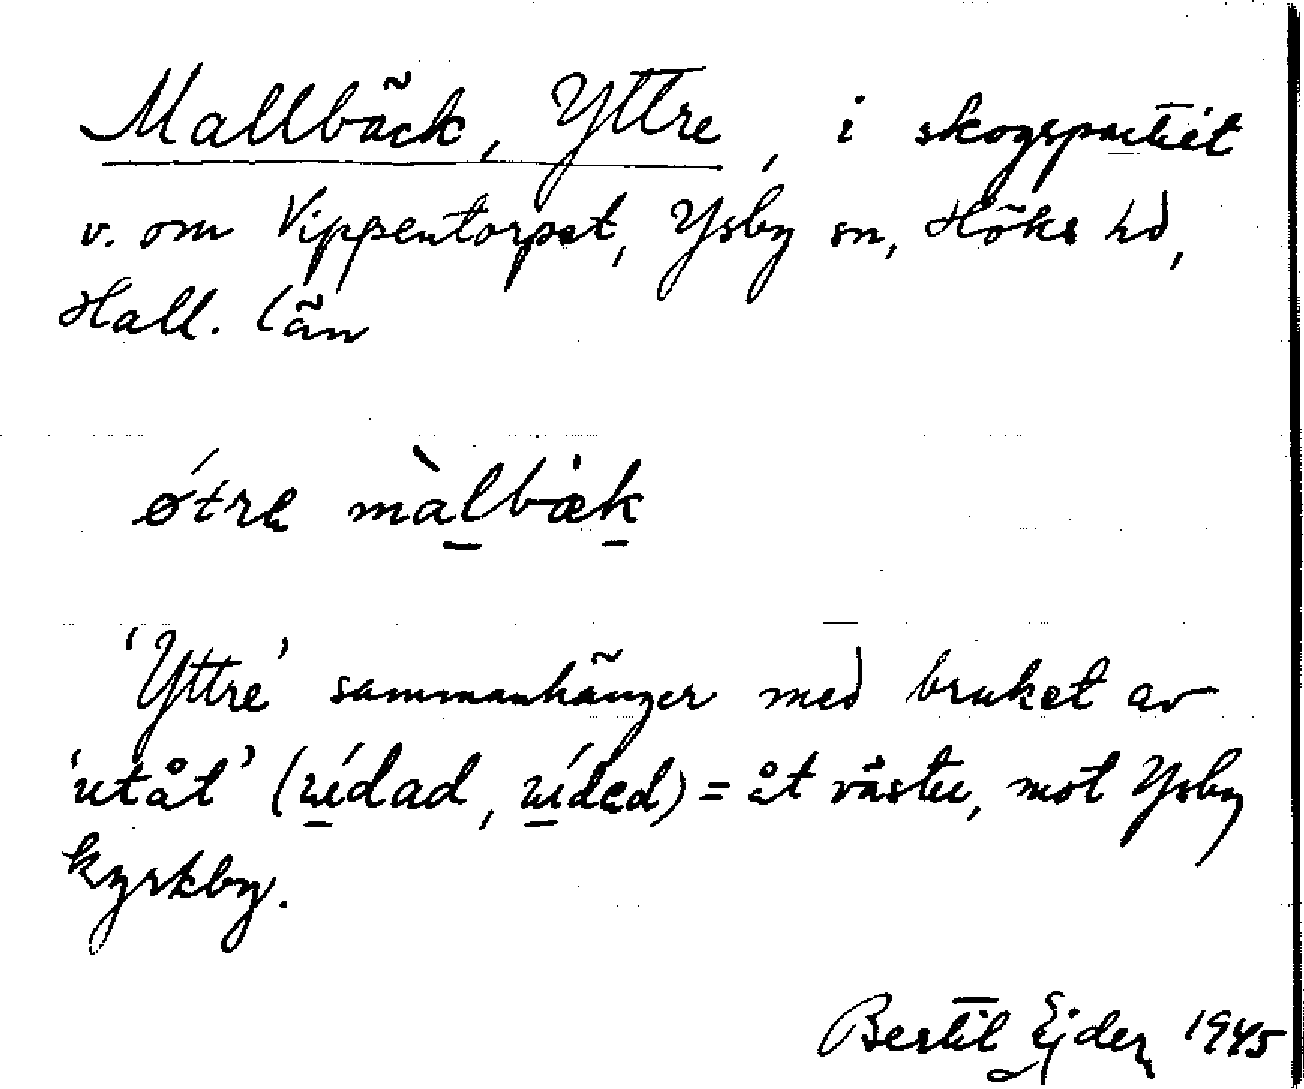 Mallbäck, Yttre, i skogspartiet
v. om Vippentorpet, Ysby sn, Höks hd,
Hall. län
ǿtre màlbæk
'Yttre' sammanhänger med bruket av
'utåt' (údad, úded) = åt väster, mot Ysby
kyrkby.
Bertil Ejder 1945